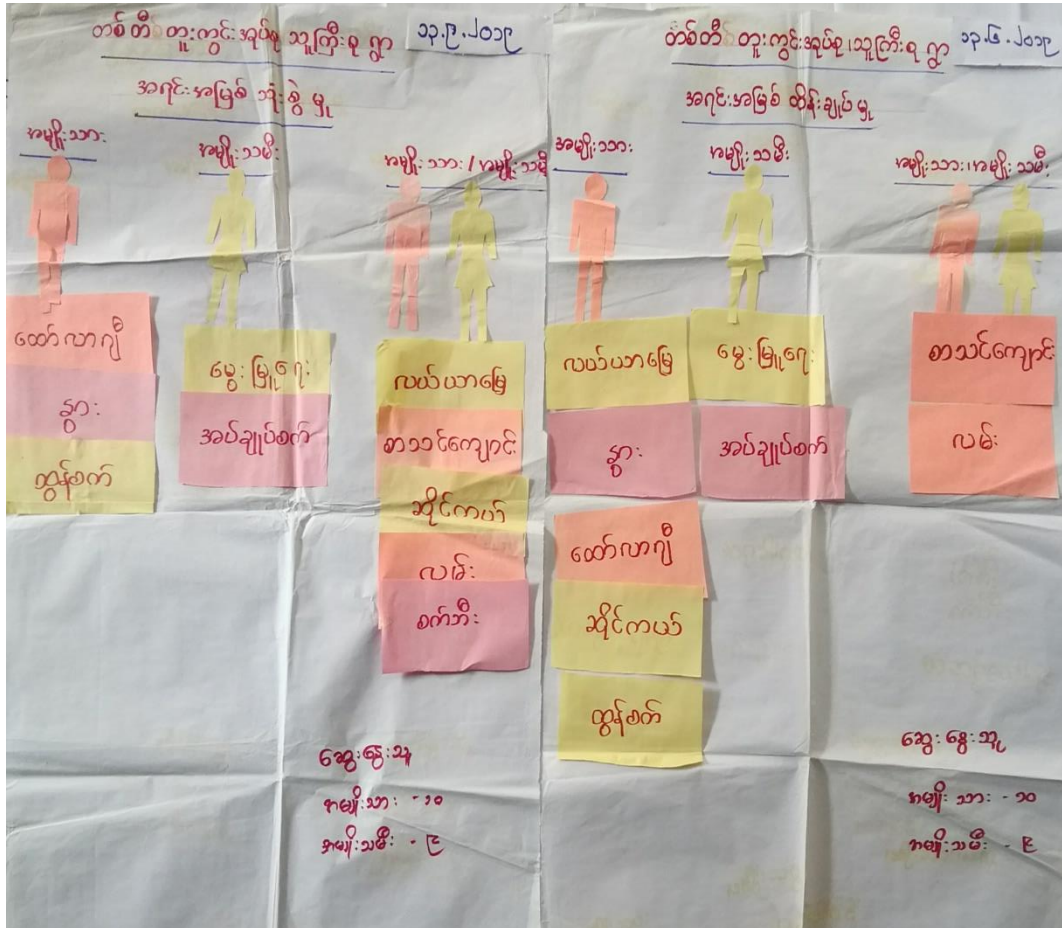 တစ်တီ တူးကွင်းအုပ်စု သူကြီးစု ရွာ ၁၃.၉.၂၀၁၉
အရင်းအမြစ် သုံးစွဲ မှု
အမျိုးသား
အမျိုးသမီး
အမျိုးသား / အမျိုးသမီ
ထော်လာဂျီ
နွား
ထွန်စက်
မွေးမြူရေး
အပ်ချုပ်စက်
လယ်ယာမြေ
စာသင်ကျောင်း
ဆိုင်ကယ်
လမ်း
စက်ဘီး
ဆွေးနွေးသူ
အမျိုးသား - ၁၀
အမျိုးသမီး - ၉
တစ်တီ တူးကွင်းအုပ်စု၊သူကြီးစု ရွာ ၁၃.၆.၂၀၁၉
အရင်းအမြစ် ထိန်းချုပ် မှု
အမျိုးသား
အမျိုးသမီး
အမျိုးသား၊အမျိုးသမီး
လယ်ယာမြေ
နွား
ထော်လာဂျီ
ဆိုင်ကယ်
ထွန်စက်
မွေးမြူရေး
အပ်ချုပ်စက်
စာသင်ကျောင်း
လမ်း
ဆွေးနွေးသူ
အမျိုးသား - ၁၀
အမျိုးသမီး - ၉